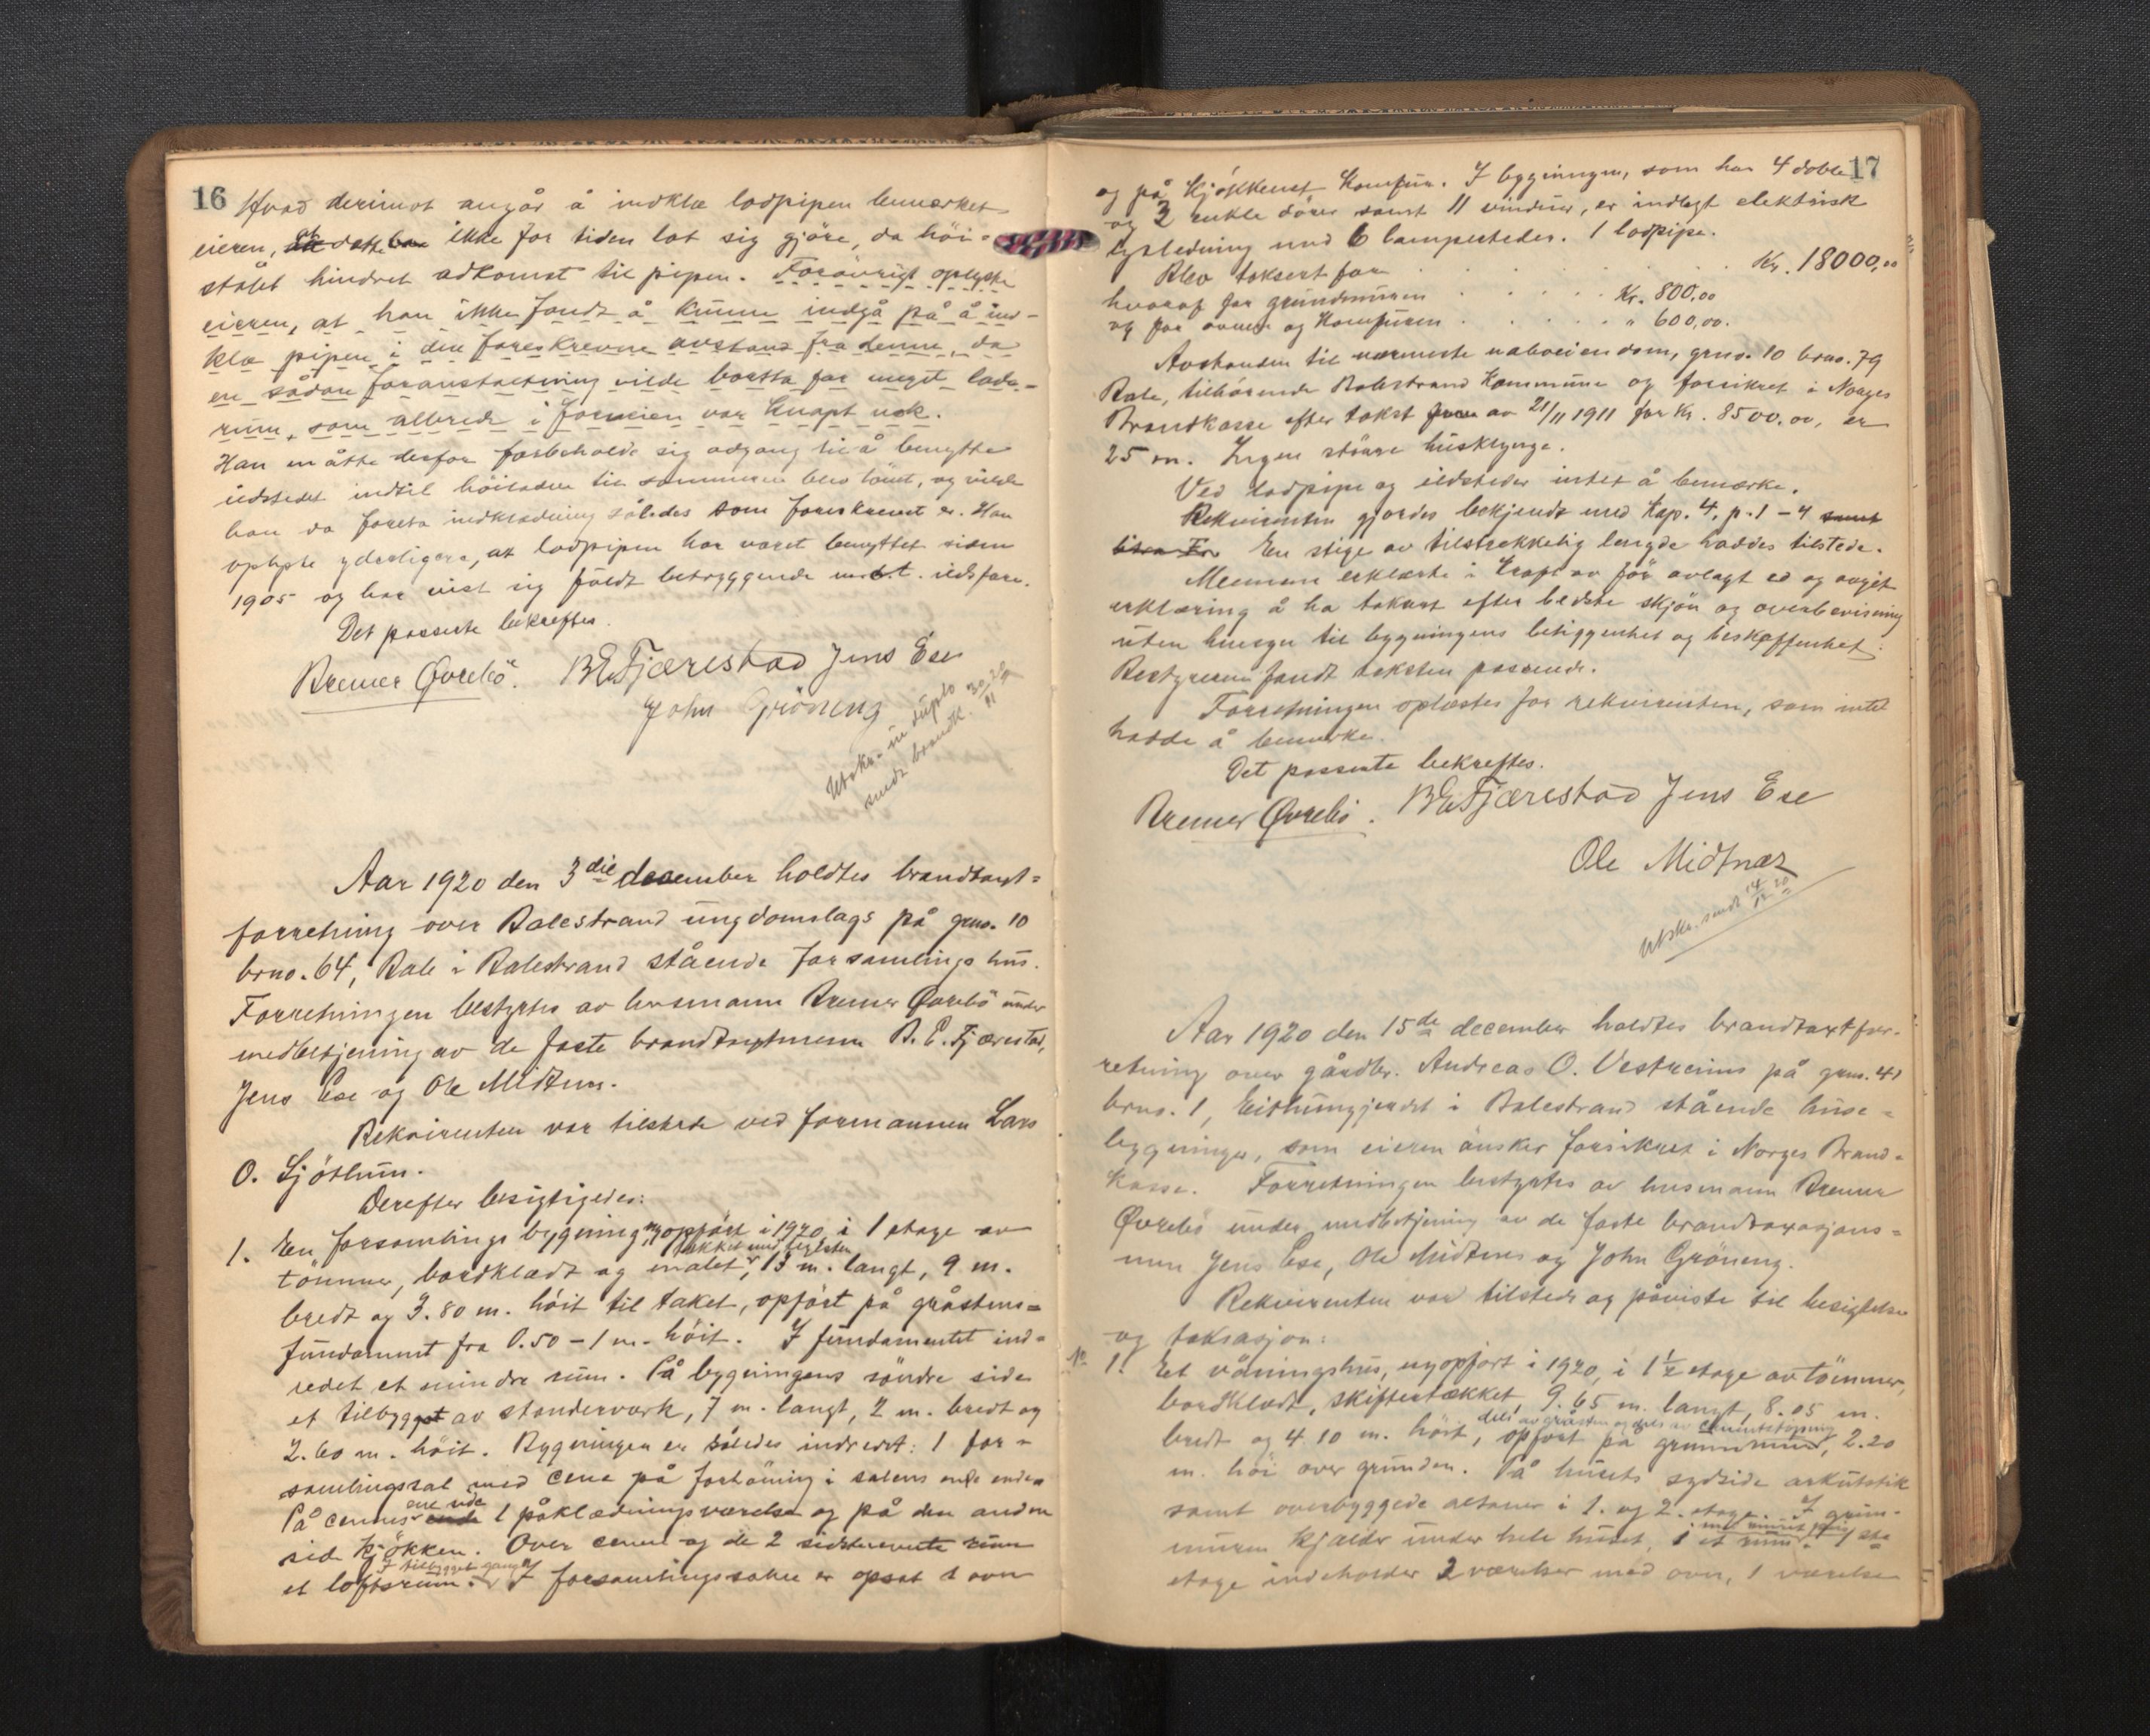 16
Hvad derimot angår å indklæ lodpipen bemærket
eieren, at dette ikke for tiden lot sig gjöre, da höi-
stålet hindret adkomst til pipen. Forövrigt oplyste
eieren, at han ikke fandt å kunne indgå på å ind-
klæ pipen i den foreskrevne avstand fra denne, da
en sådan foranstaltning vilde bortta for meget lade-
rum, som allerede i forveien var knapt nok.
Han måtte derfor forbeholde sig adgang til å benytte
ildstedet indtil höiladen til sommeren blev tömt, og vilde
han da foreta indklædning således som foreskrevet er. Han
oplyste yderligere, at lodpipen har været benyttet siden
1905 og har vist sig fuldt betryggende m.h.t. ildsfare.
Det passerte bekreftes.
Bremer Øvrebö. B E Fjærestad Jens Ese
John Gröneng
Utskr. in duplo
sendt brandk. 30/11
Aar 1920 den 3die december holdtes brandtaxt-
forretning over Balestrand ungdomslags på gno. 10
brno. 64, Bale i Balestrand stående forsamlingshus.
Forretningen bestyrtes av lensmann Bremer Øvrebö under
medbetjening av de faste brandtaxtmenn B. E. Fjærestad,
Jens Ese og Ole Midtun.
Rekvirenten var tilstede ved formannen Lars
O. Sjötun.
Derefter besigtigedes:
1. En forsamlingsbygning, nyopfört i 1920 i 1 etage av
tækket med teglsten
tömmer, bordklædt og malet, 13 m. langt, 9 m.
bredt og 3.80 m. höit til taket, opfört på gråstens-
fundament fra 0.50 - 1 m. höit. I fundamentet ind-
redet et mindre rum. På bygningens söndre side
et tilbygget av stenderverk, 7 m. langt, 2 m. bredt og
2.60 m. höit. Bygningen er således indredt: 1 for-
samlingssal med cene på forhöining i salens ene ende.
ene side
På cenens ende 1 påklædningsværelse og på den anden
side kjökken. Over cenen og de 2 sidstnevnte rum
I tilbygget gang
et loftsrum. I forsamlingssalen er opsat 1 ovn
17
og på kjökkenet komfur. I bygningen, som har 4 doble
og 3 enkle dörer samt 11 vinduer, er indlagt elektrisk
lysledning med 6 lampesteder. 1 lodpipe.
Blev taksert for . . . . . . Kr. 18000,00
hvorav for grundmuren . . . . Kr. 800,00
og for ovnen og komfuren . . . . " 600,00.
Avstanden til nærmeste naboeiendom, grno. 10 brno. 79
Bale, tilhörende Balestrand kommune og forsikret i Norges
Brandkasse efter takst av 21/11 1911 for kr. 8500.00, er
25 m. Ingen större husklynge.
Ved lodpipe og ildsteder intet å bemærke.
Rekvirenten gjordes bekjendt med Kap. 4, p. 1 - 4 samt
En stige av tilstrekkelig lengde haddes tilstede.
Mennene erklærte i kraft av för avlagt ed og avgit
erklæring å ha taksert efter bedste skjön og overbevisning
uten hensyn til bygningens beliggenhet og beskaffenhet.
Bestyreren fandt taksten passende.
Forretningen oplæstes for rekvirenten, som intet
hadde å bemerke.
Det passerte bekreftes.
Bremer Øvrebö. B E Fjærestad Jens Ese
Ole Midtnæs
Utskr. sendt 14/12 20
Aar 1920 den 15de december holdtes brandtaxtfor-
retning over gårdbr. Andreas O. Vestreims på grno. 41
brno. 1, i Balestrand stående huse-
bygninger, som eieren önsker forsikret i Norges Brand-
kasse. Forretningen bestyrtes av lensmann Bremer
Øvrebö under medbetjening av de faste brandtaxasjons-
men Jens Ese, Ole Midtnes og John Gröneng.
Rekvirenten var tilstede og påviste til besigtelse
og taksasjon:
No 1. Et våningshus, nyopfört i 1920, i 1½ etage av tömmer,
bordklædt, skiffertækket, 9.65 m. langt, 8.05 m.
dels av gråsten og dels av cementstöpning
bredt og 4.10 m. höit, opfört på grunnmur, 2.20
m. höi over grunden. På husets sydside arkutstik
samt overbyggede altaner i 1. og 2. etage. I grun-
muren kjælder under hele huset, i et rum 1ste
etage indeholder 2 værelser med ovn, 1 værelse